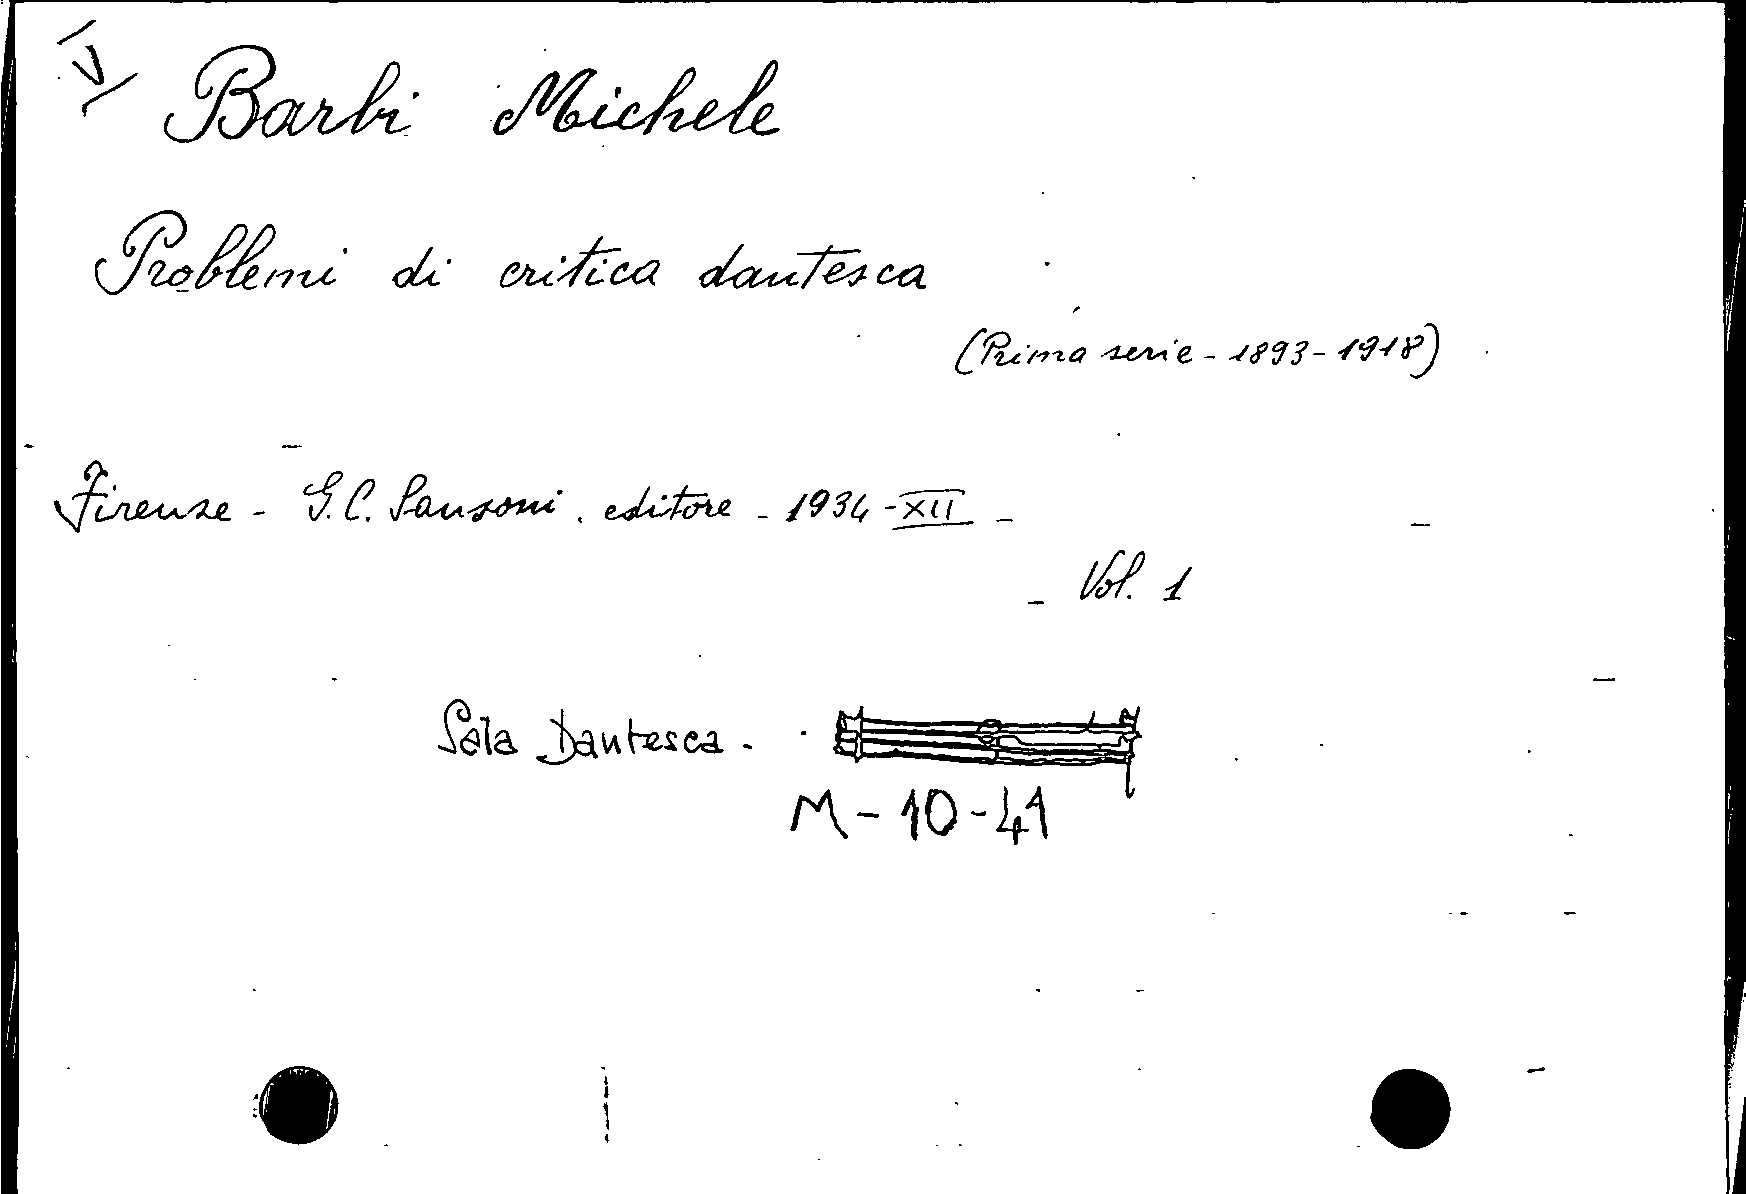 Barbi Michele
Problemi di critica dantesca
(Prima serie - 1893-1918)
Firenze - G.C. Sansoni. editore - 1934 - XII -
- Vol. 1
Sala Dantesca.
M-10-41